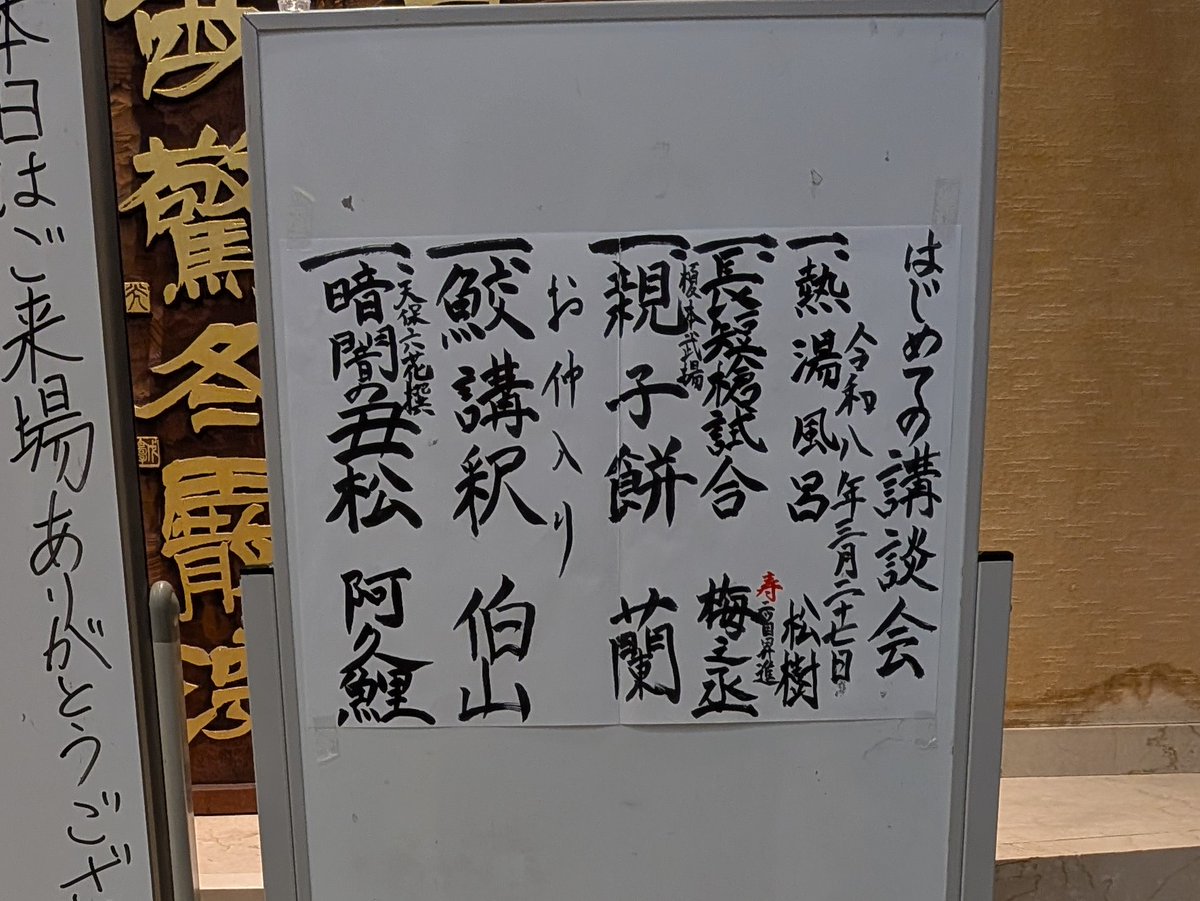 はじめての講談会
令和八年三月二十七日
一、熱湯風呂 松樹
寿 二ツ目昇進
一、長短槍試合 梅之丞
榎本武揚
一、親子餅 蘭
お仲入り
一、鮫講釈 伯山
天保六花撰
一、暗闇の丑松 阿久鯉
本日はご来場ありがとうござ